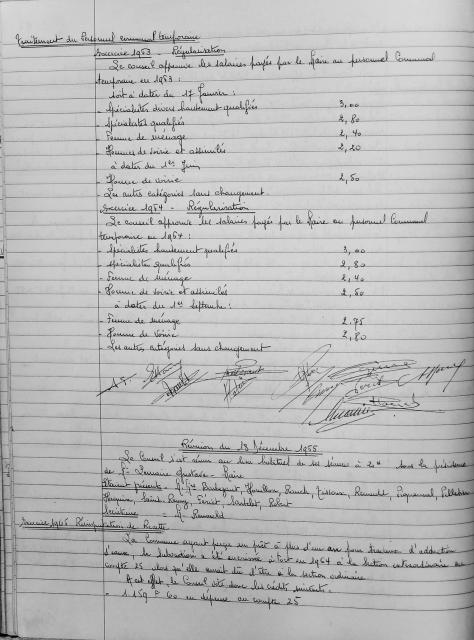 Traitement du Personnel communal temporaire
Exercice 1963 - Régularisation
Le conseil approuve les salaires payés par le Maire au personnel Communal
temporaire en 1963 :
soit à dater du 17 Janvier :
- Spécialistes divers hautement qualifiés 3,00
- Spécialistes qualifiés 2,80
- Femme de ménage 2,40
- Hommes de voirie et assimilés 2,20
à dater du 1er Juin
- Homme de voirie 2,50
- Les autres catégories sans changement.
Exercice 1964 - Régularisation
Le Conseil approuve les salaires payés par le Maire au personnel Communal
temporaire en 1964 :
- Spécialistes hautement qualifiés 3,00
- Spécialistes qualifiés 2,80
- Femme de ménage 2,40
- Homme de voirie et assimilés 2,50
à dater du 1er Septembre :
- Femme de ménage 2,75
- Homme de Voirie 2,80
- Les autres catégories sans changement
Réunion du 18 Décembre 1965
Le Conseil s'est réuni au lieu habituel de ses séances à 20H sous la présidence
de Mr Lemaire Gustave - Maire
Etaient présents :
Secrétaire = Mr
Exercice 1965 Réimputation de Recette
La Commune ayant perçu un prêt à plus d'un an pour travaux d'adduction
d'eau, la Subvention a été encaissée à tort en 1964 à la section extraordinaire au
compte 25 alors qu'elle aurait dû l'être à la section ordinaire
A cet effet, le Conseil vote donc les crédits suivants :
- 1 159 F 60 en dépense au compte 25